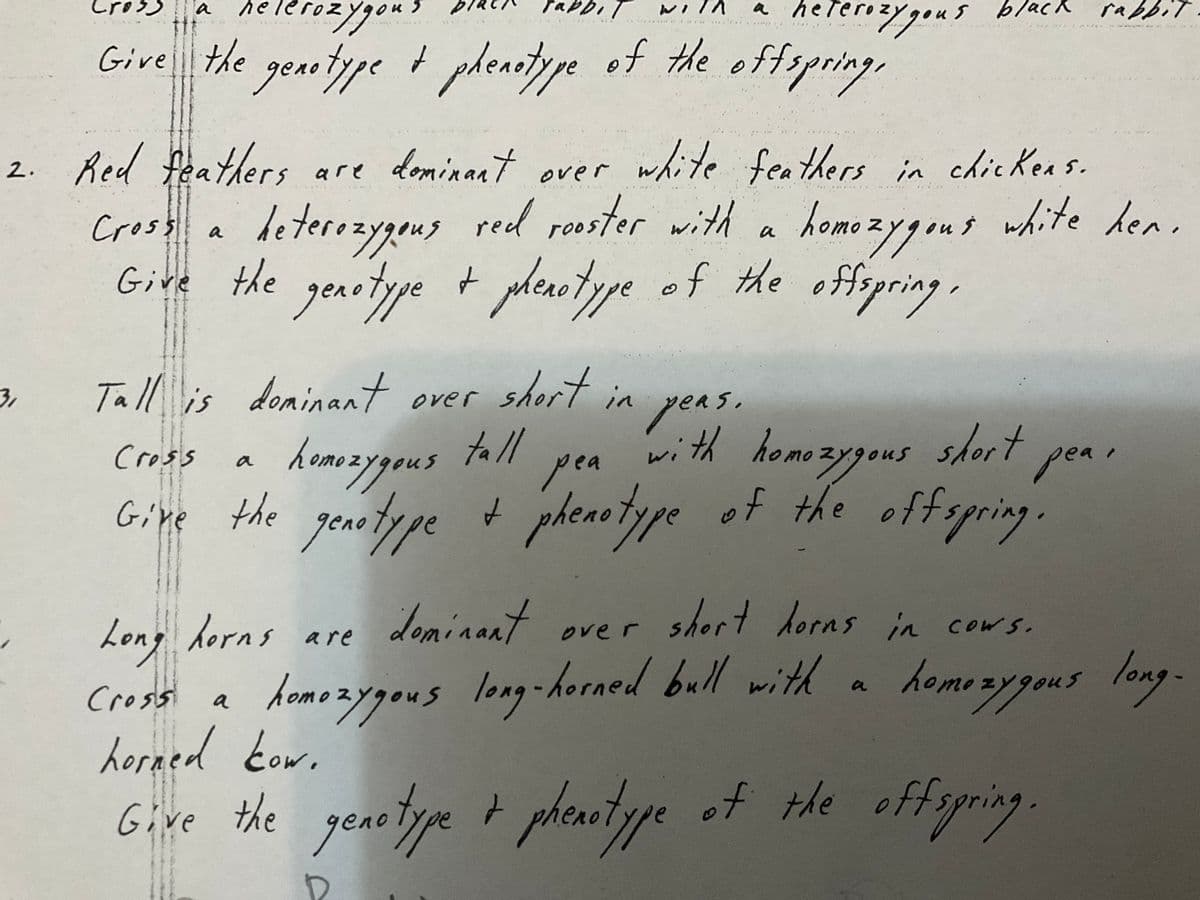 Cross a heterozygous black rabbit with a heterozygous black rabbit.
Give the genotype + phenotype of the offspring.
2. Red feathers are dominant over white feathers in chickens.
Cross a heterozygous red rooster with a homozygous white hen.
Give the genotype + phenotype of the offspring.
3. Tall is dominant over short in peas.
Cross a homozygous tall pea with homozygous short pea.
Give the genotype + phenotype of the offspring.
Long horns are dominant over short horns in cows.
Cross a homozygous long-horned bull with a homozygous long-
horned cow.
Give the genotype + phenotype of the offspring.